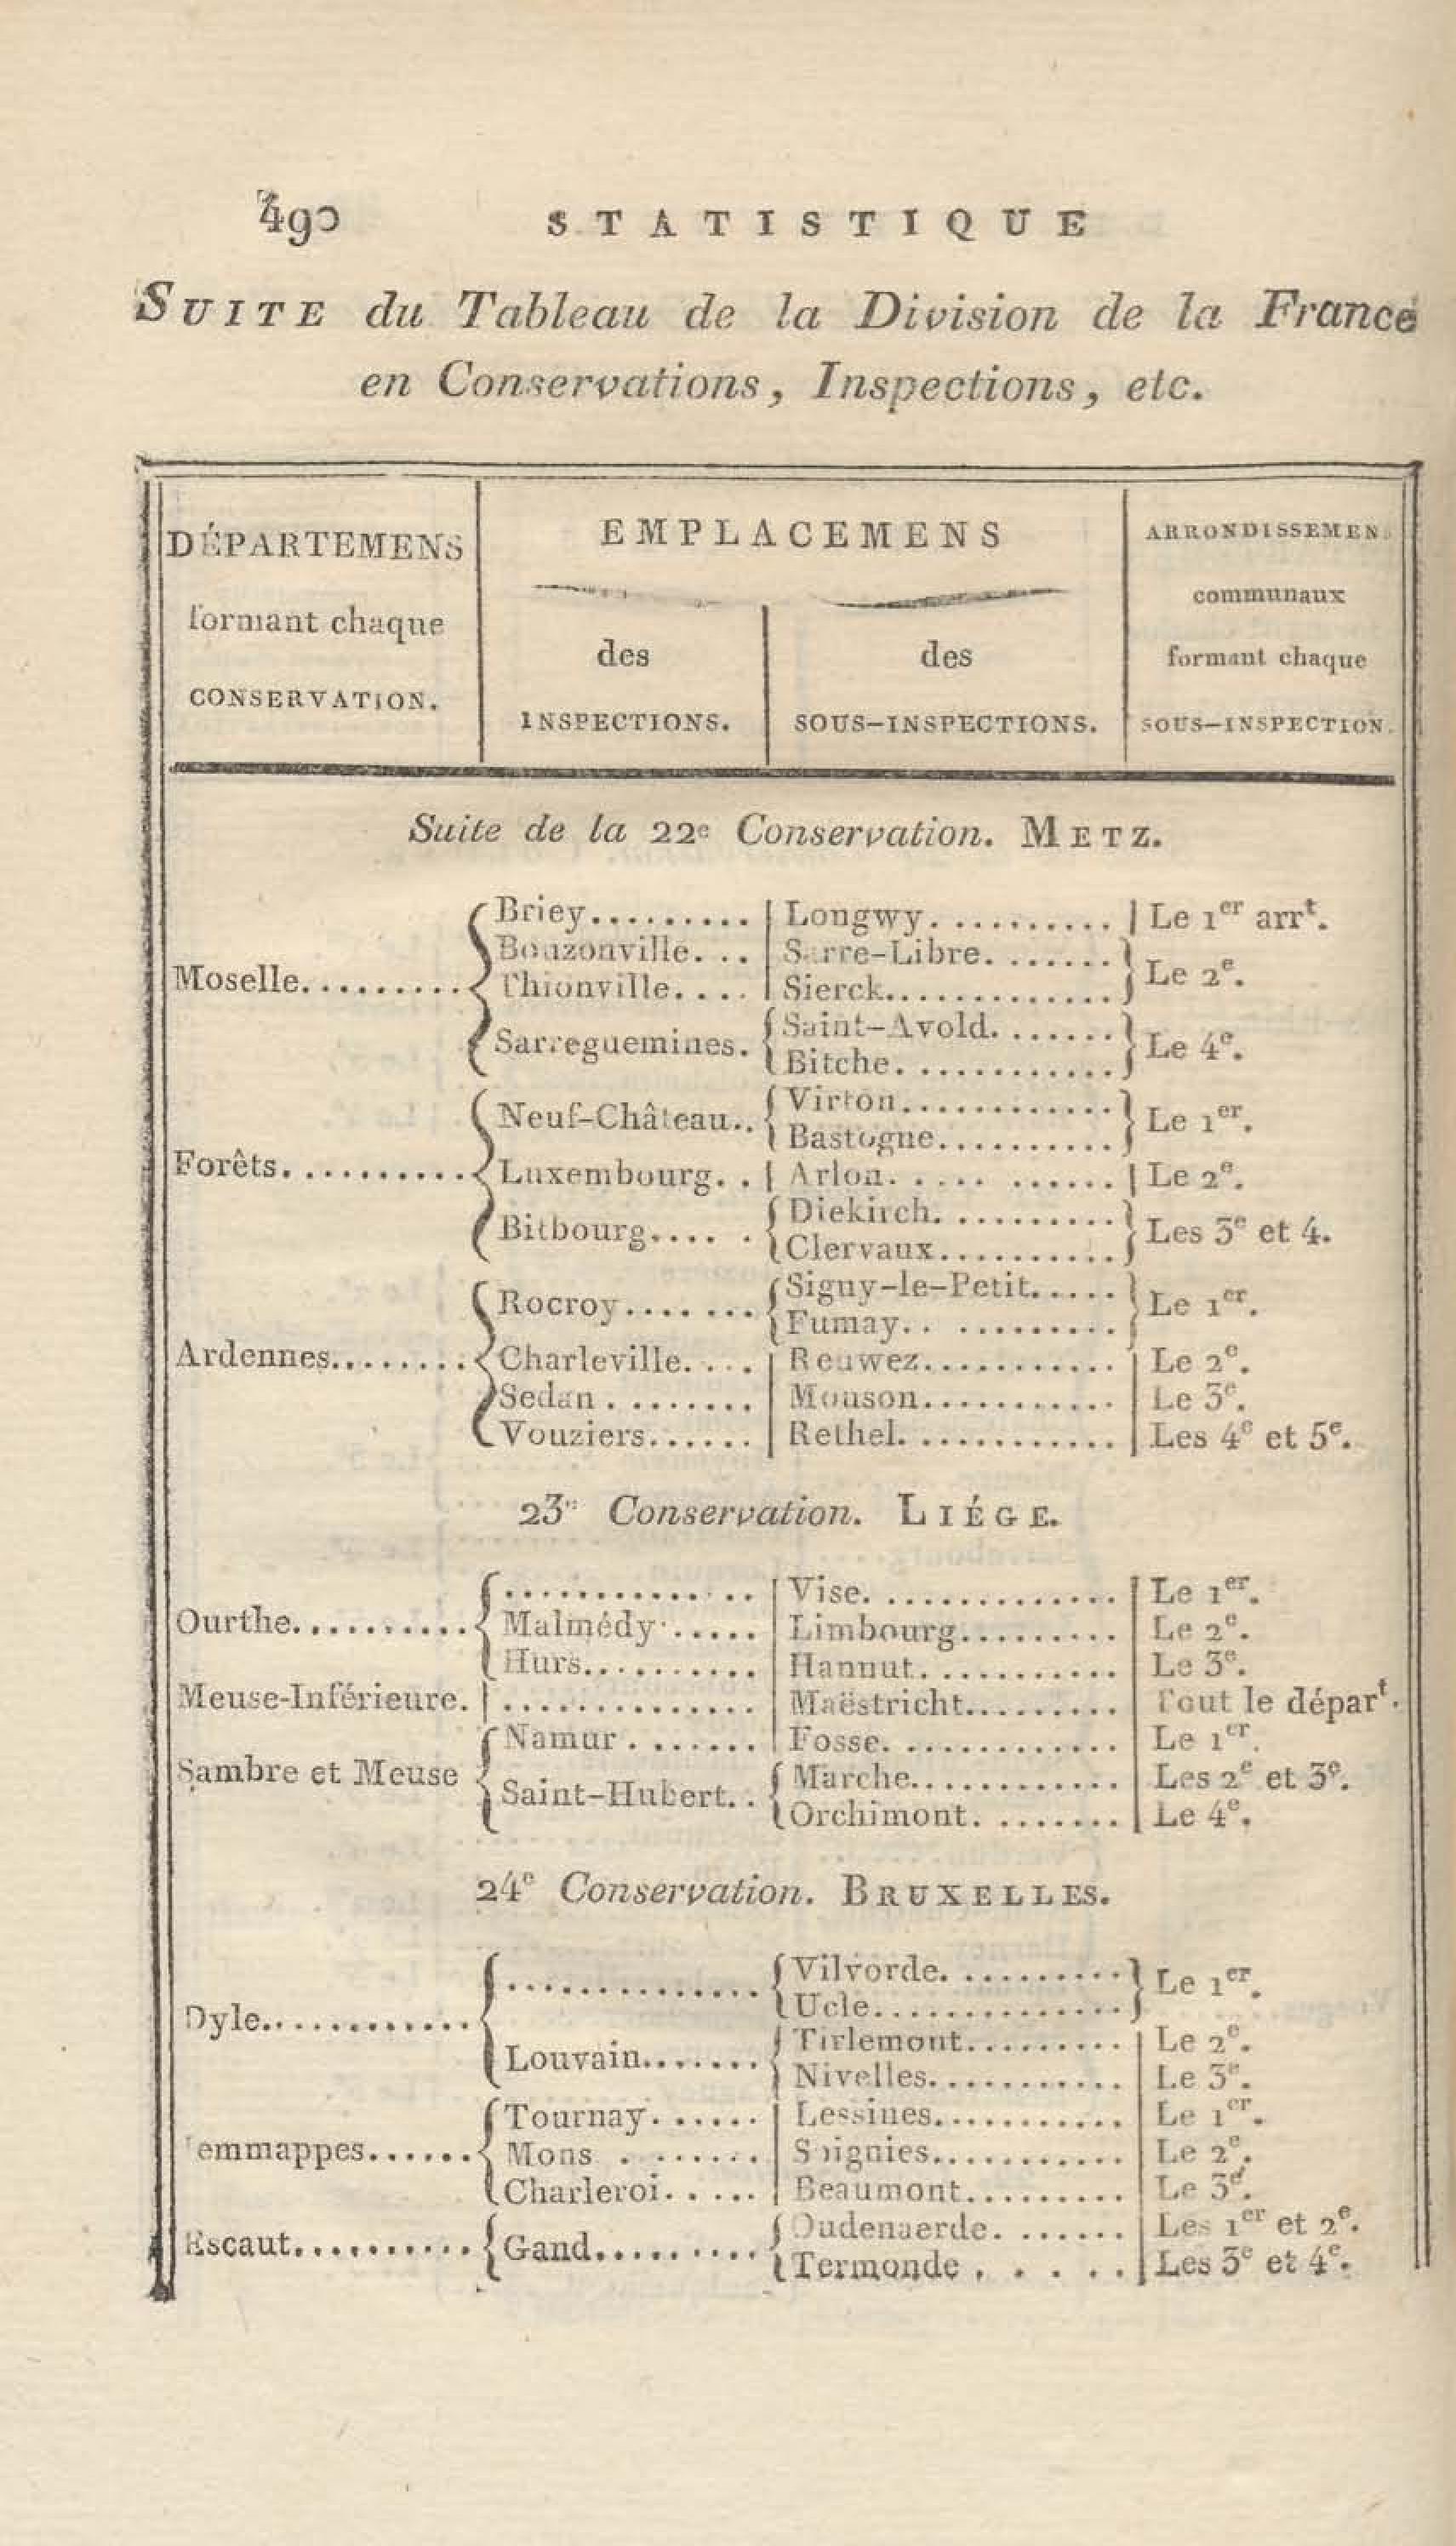 490 STATISTIQUE
SUITE du Tableau de la Division de la France
en Conservations, Inspections, etc.
DÉPARTEMENS
formant chaque
CONSERVATION.
EMPLACEMENS
des
INSPECTIONS.
des
SOUS-INSPECTIONS.
ARRONDISSEMENS
communaux
formant chaque
SOUS-INSPECTION.
Suite de la 22e Conservation. METZ.
Moselle..........
Briey......... Longwy. .......... Le 1er arrt.
Bouzonville. .. Sarre-Libre. .......
Thionville.... Sierck.............
Le 2e.
Sarreguemines. Saint-Avold. .......
Bitche. ............
Le 4e.
Forêts. ..........
Neuf-Château.. Virton.............
Bastogne..........
Le 1er.
Luxembourg. . Arlon. .... ...... Le 2e.
Bitbourg.... . Diekirch. ..........
Clervaux..........
Les 3e et 4.
Ardennes........
Rocroy....... Signy-le-Petit.....
Fumay. . .........
Le 1er.
Charleville. ... Renwez........... Le 2e.
Sedan . ....... Mouson........... Le 3e.
Vouziers...... Rethel. ........... Les 4e et 5e.
23e Conservation. LIÉGE.
Ourthe..........
.............. Vise. ............. Le 1er.
Malmédy ..... Limbourg......... Le 2e.
Hurs.......... Hannut. .......... Le 3e.
Meuse-Inférieure. .............. Maëstricht......... Tout le départ.
Sambre et Meuse
Namur . ...... Fosse. ............ Le 1er.
Saint-Hubert. . Marche............ Les 2e et 3e.
Orchimont. ....... Le 4e.
24e Conservation. BRUXELLES.
Dyle............
.............. Vilvorde. .........
Ucle..............
Le 1er.
Louvain....... Tirlemont......... Le 2e.
Nivelles........... Le 3e.
emmappes......
Tournay. ..... Lessines........... Le 1er.
Mons . ...... Soignies........... Le 2e.
Charleroi. .... Beaumont......... Le 3e.
Escaut.......... Gand......... Oudenaerde. ...... Les 1er et 2e.
Termonde . . . . . Les 3e et 4e.